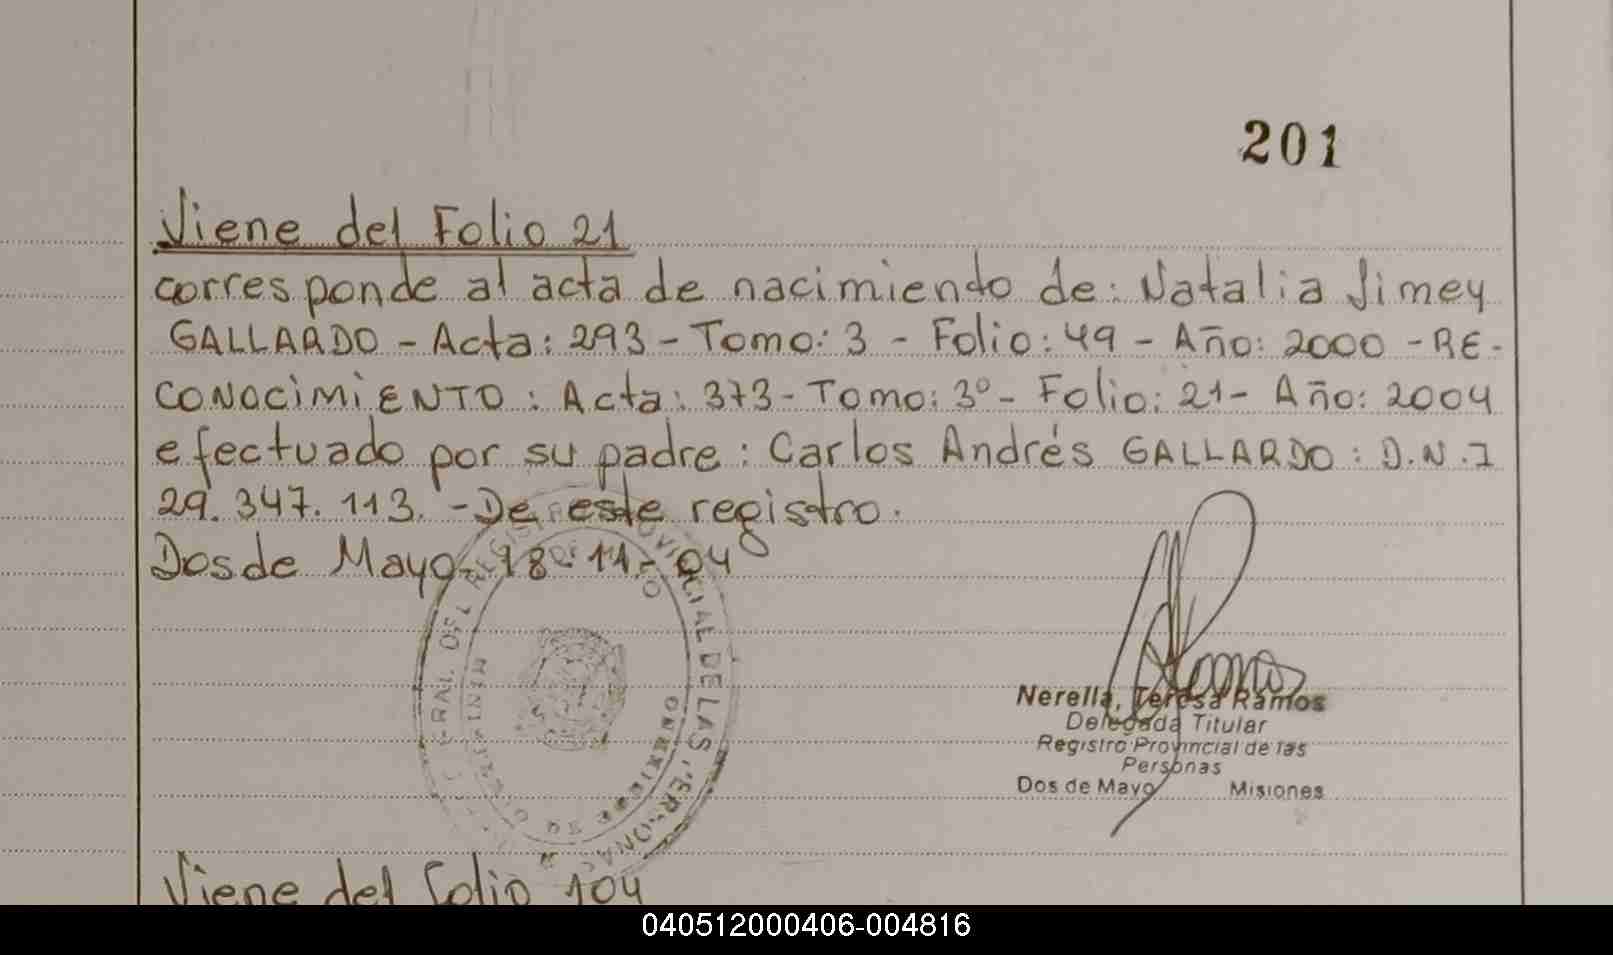 201
Viene del Folio 21
corresponde al acta de nacimiento de: Natalia Jimey
GALLARDO - Acta: 293 - Tomo: 3 - Folio: 49 - Año: 2000 - RE-
CONOCIMIENTO: Acta: 373 - Tomo: 3º - Folio: 21 - Año: 2004
efectuado por su padre: Carlos Andrés GALLARDO: D.N.I
29.347.113. - De este registro.
Dos de Mayo - 18 - 11 - 04
DEL REGISTRO PROVINCIAL DE LAS PERSONAS
Nerella, Teresa Ramos
Delegada Titular
Registro Provincial de las
Personas
Dos de Mayo Misiones
Viene del Folio 104
040512000406-004816